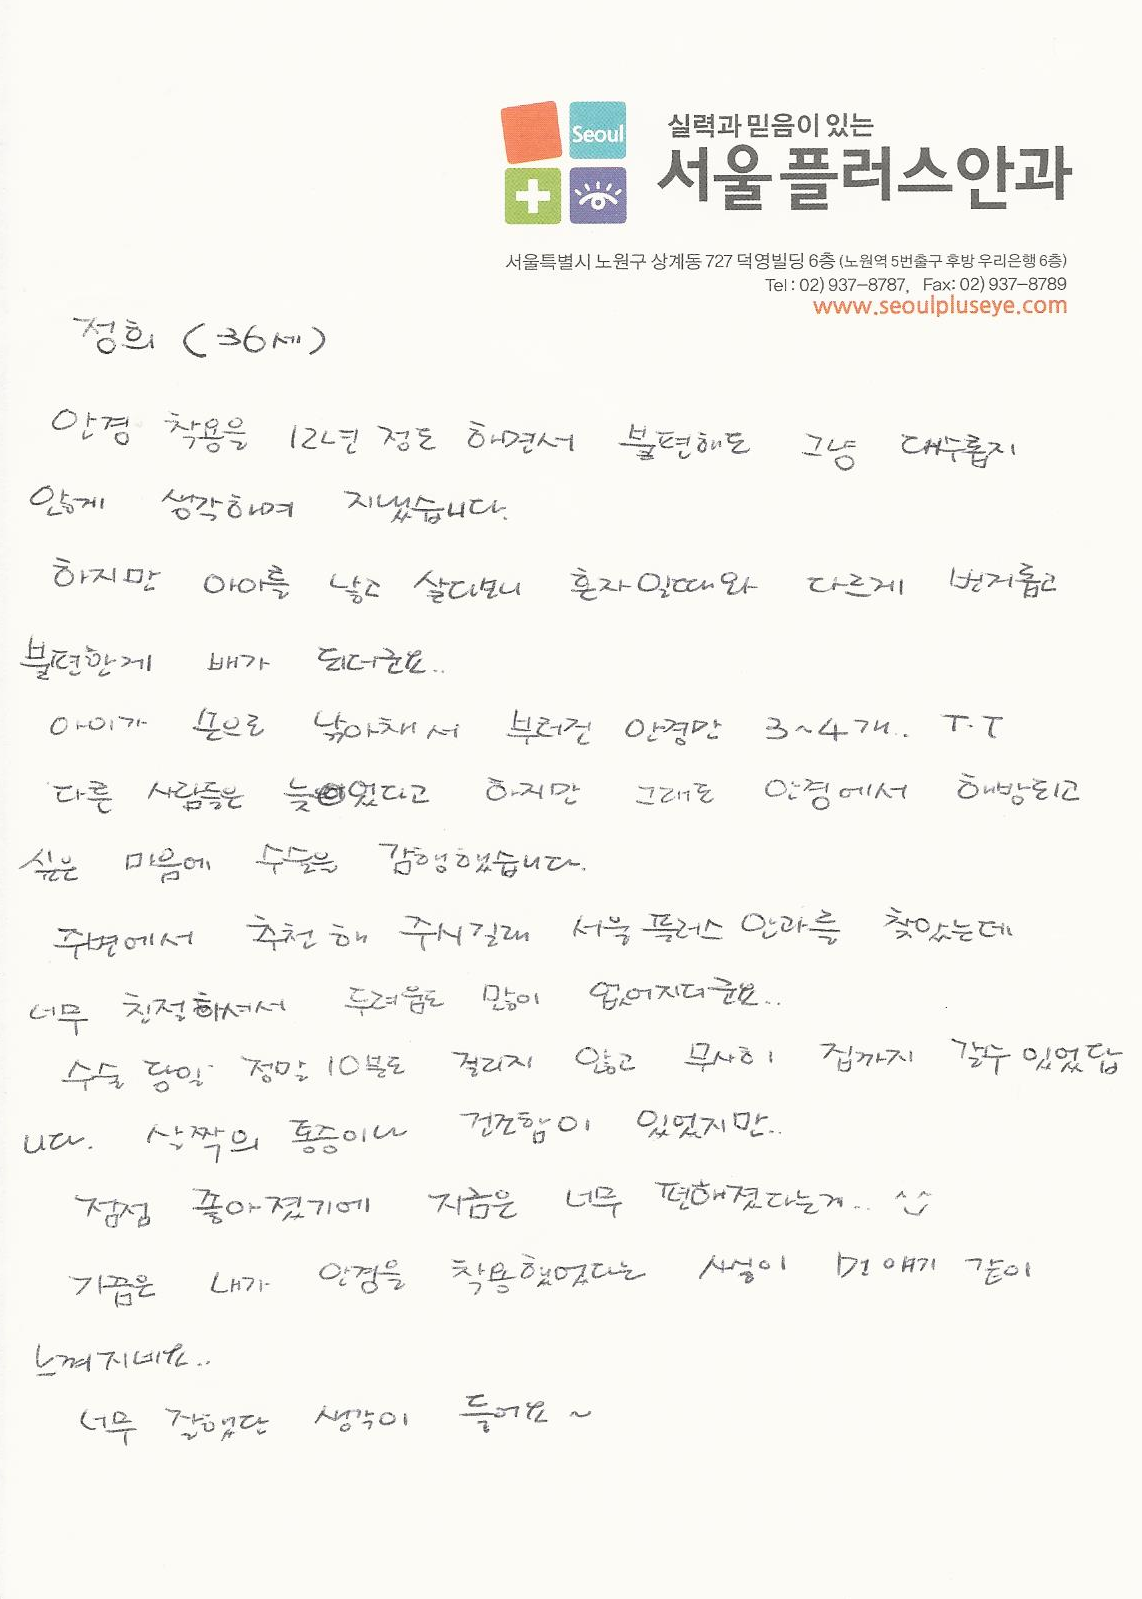 Seoul
실력과 믿음이 있는
서울플러스안과
서울특별시 노원구 상계동 727 덕영빌딩 6층 (노원역 5번출구 후방 우리은행 6층)
Tel : 02) 937-8787,  Fax: 02) 937-8789
www.seoulpluseye.com
정희 (36세)
안경 착용을 12년 정도 하면서 불편해도 그냥 대수롭지
않게 생각하며 지냈습니다.
하지만 아이를 낳고 살다보니 혼자일때와 다르게 번거롭고
불편한게 배가 되더군요..
아이가 손으로 낚아채서 부러진 안경만 3~4개.. T.T
다른 사람들은 늦었다고 하지만 그래도 안경에서 해방되고
싶은 마음에 수술을 감행했습니다.
주변에서 추천해 주시길래 서울플러스 안과를 찾았는데
너무 친절하셔서 두려움도 많이 없어지더군요..
수술 당일 정말 10분도 걸리지 않고 무사히 집까지 갈수 있었답
니다. 살짝의 통증이나 건조함이 있었지만..
점점 좋아졌기에 지금은 너무 편해졌다는게.. ^^
가끔은 내가 안경을 착용했었다는 사실이 먼 얘기 같이
느껴지네요..
너무 잘했단 생각이 들어요 ~